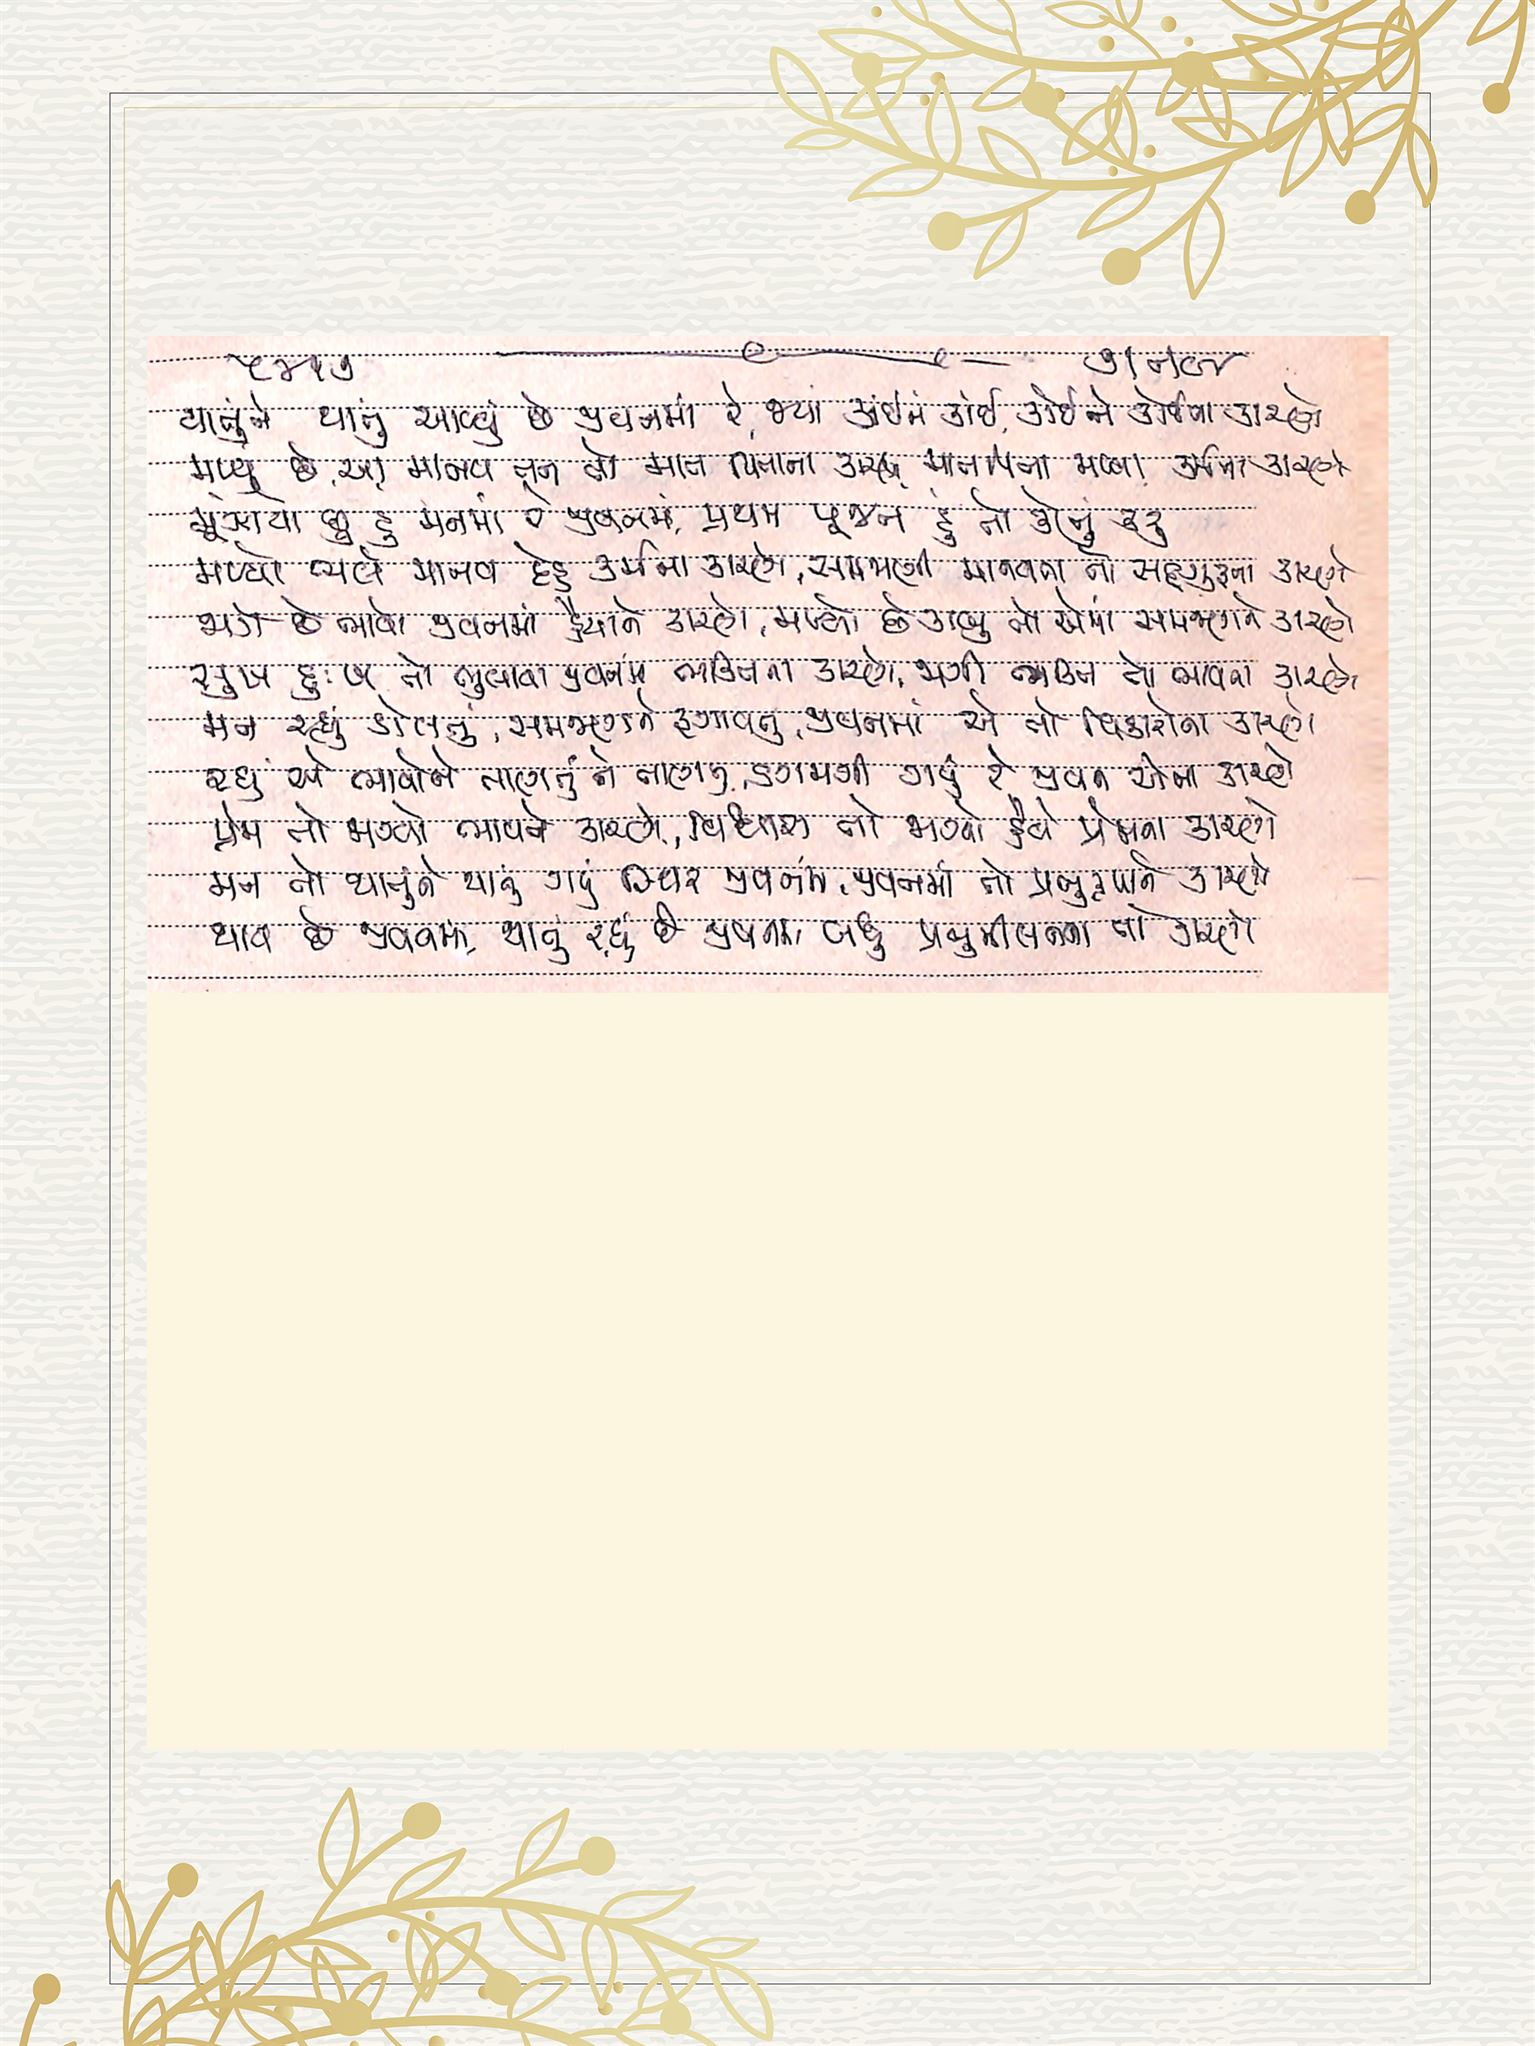 થાતુંને થાતું આવ્યું છે જીવનમાં રે, જ્યાં કાંઈને કાંઈ, કોઈને કોઈના કારણે
મળ્યું છે આ માનવ તન તો માત પિતાના કારણે, માતપિતા મળ્યા કર્મના કારણે
મૂંઝાયો છું હું મનમાં રે જીવનમાં, પ્રથમ પૂજન હું તો કોનું કરું
મળ્યો ભલે માનવ દેહ કર્મના કારણે, સમજણ તો સદ્દગુરુના કારણે
જાગે છે ભાવો જીવનમાં હૈયાને કારણે, મળ્યો છે કાબૂ તો એમાં સમજણને કારણે
સુખ દુઃખ તો ભુલાવા જીવનમાં ભક્તિના કારણે, જાગી ભક્તિ તો ભાવના કારણે
મન રહ્યું ડોલતું, સમજણને ડગાવતું, જીવનમાં એ તો વિકારોના કારણે
રહ્યું એ ભાવોને તાણતું ને તાણતું, ડગમગી ગયું રે જીવન એના કારણે
પ્રેમ તો જાગ્યો ભાવને કારણે, વિશ્વાસ તો જાગ્યો હૈયે પ્રેમના કારણે
મન તો થાતુંને થાતું ગયું સ્થિર જીવનમાં, જીવનમાં તો પ્રભુકૃપાને કારણે
થાય છે જીવનમાં, થાતું રહ્યું છે જીવનમાં, બધું પ્રભુમીલનના તો કારણે